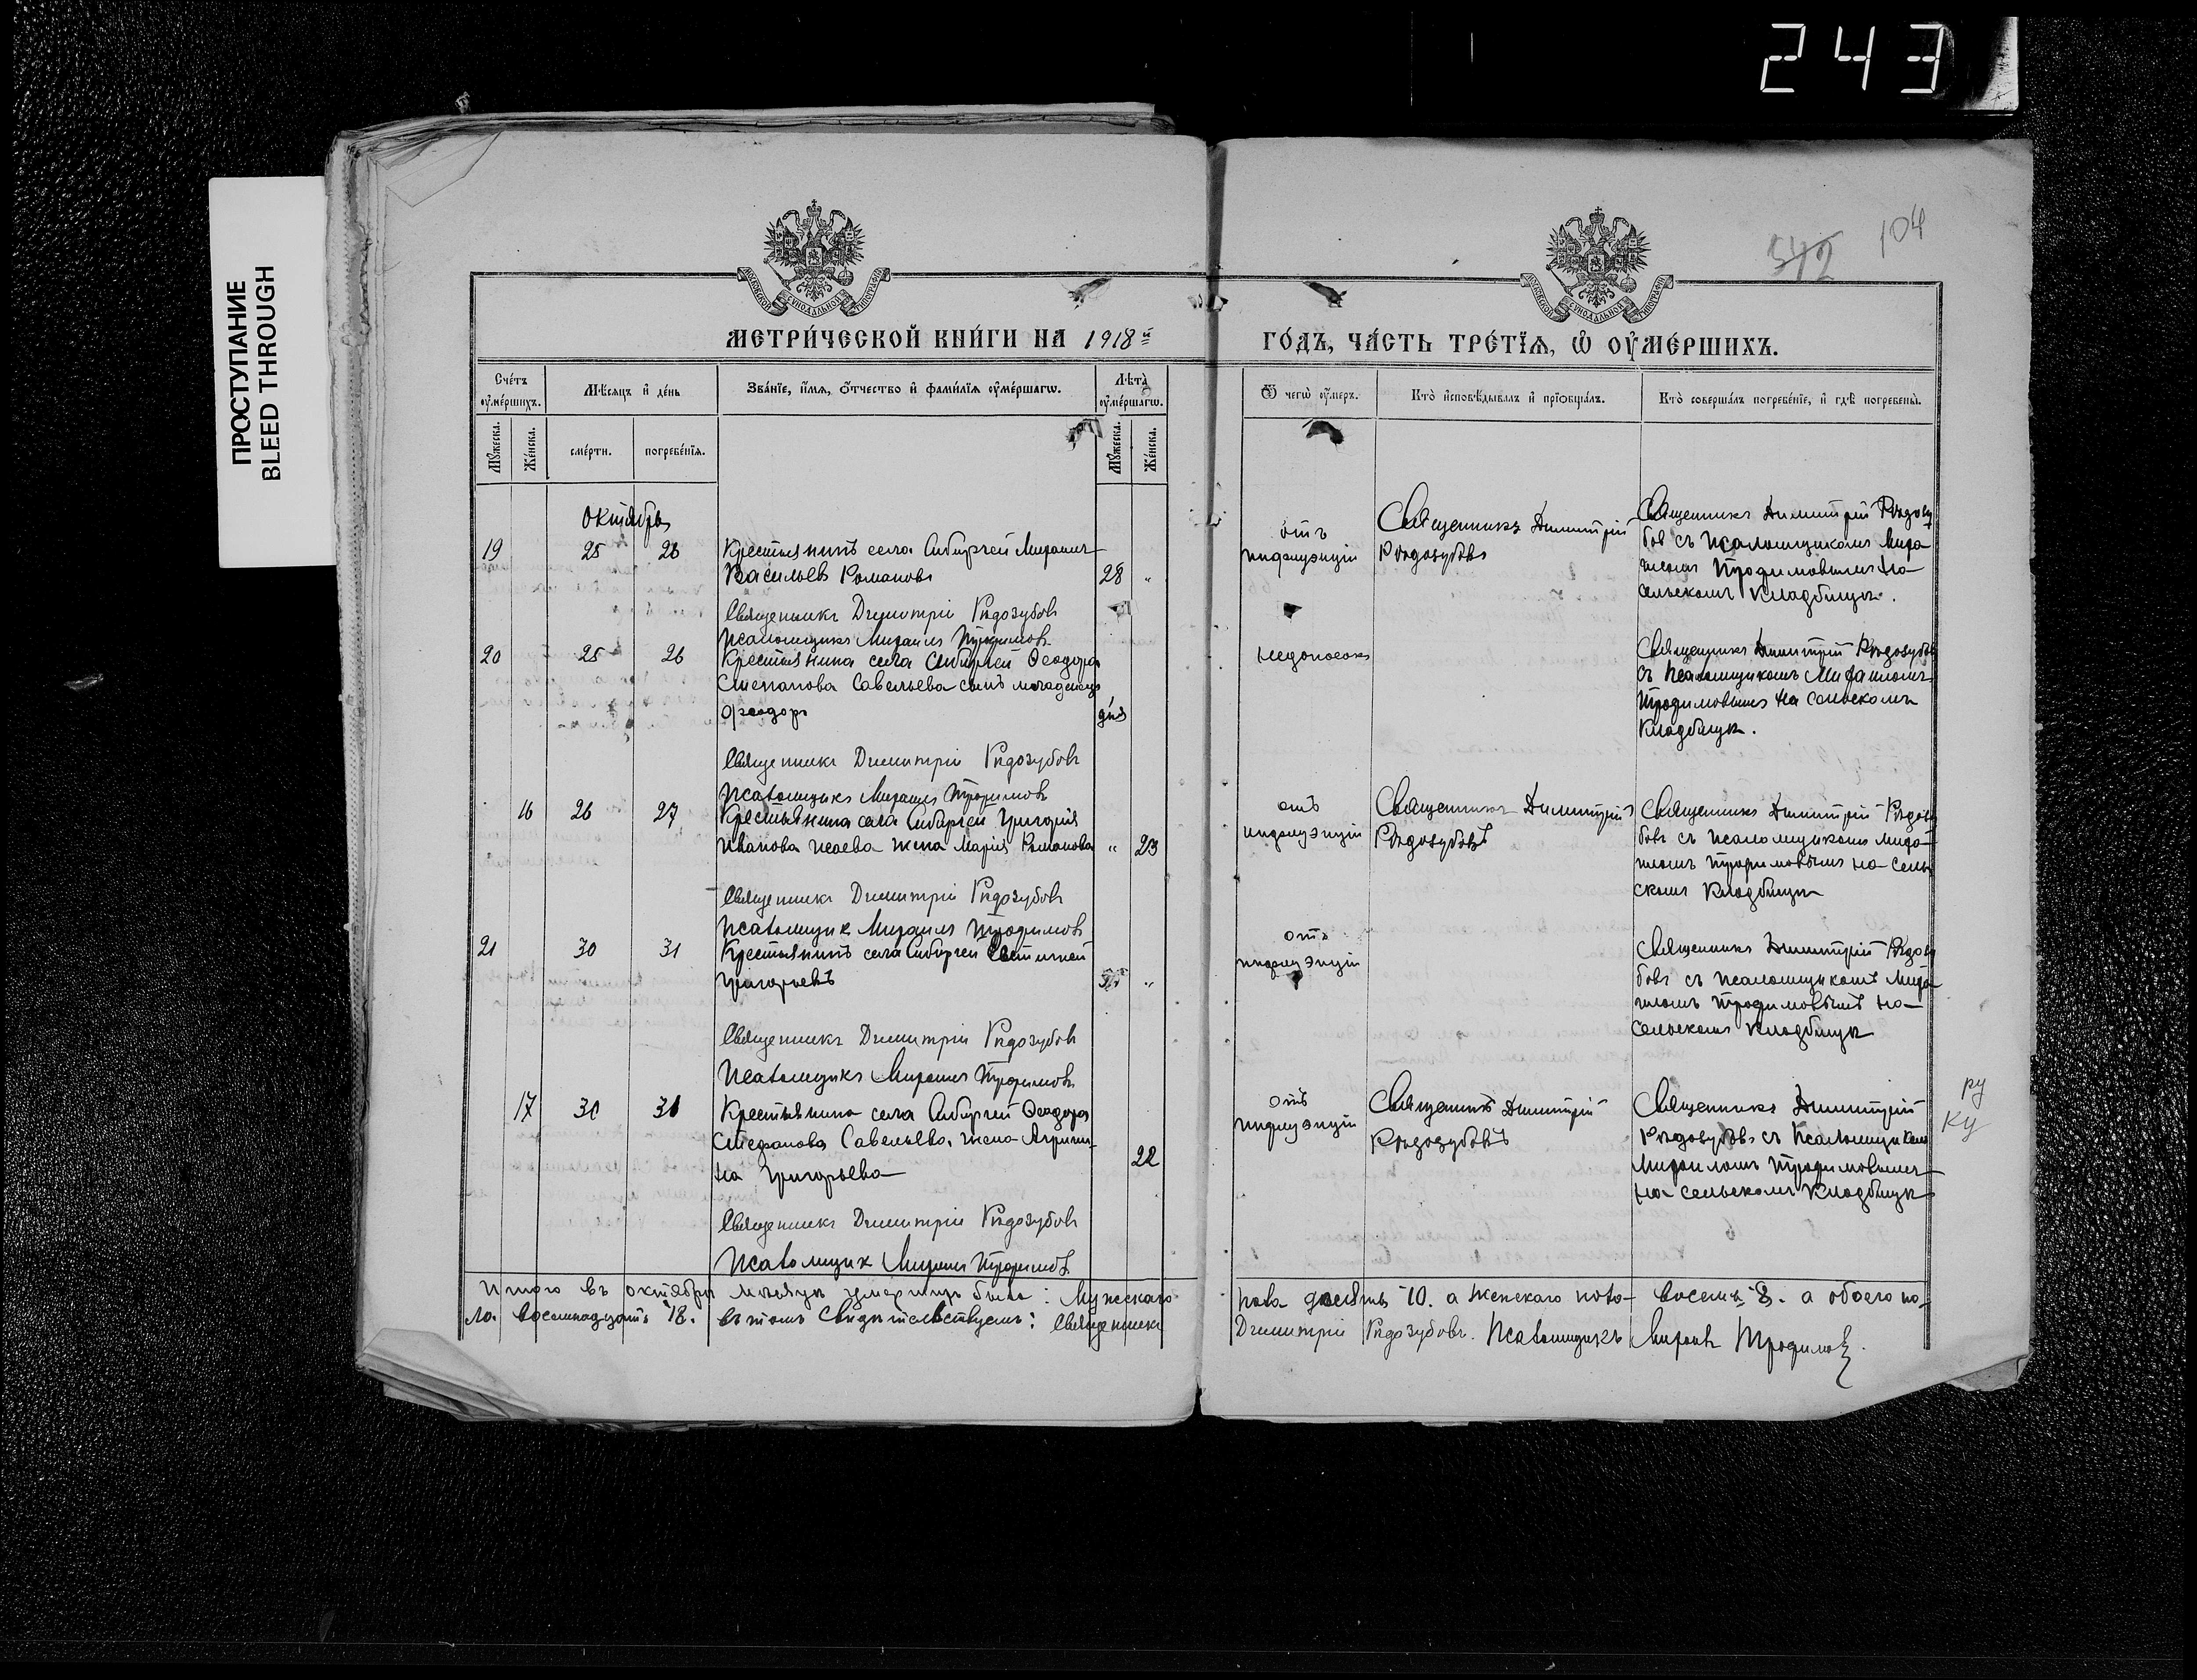 243
ПРОСТУПАНИЕ
BLEED THROUGH
512 104
МЕТРИ́ЧЕСКОЙ КНИ́ГИ НА 1918й
ГО́ДЪ, ЧА́СТЬ ТРЕ́ТЇЯ, Ѿ ОУ҆МЕ́РШИХЪ.
Сче́тъ оу҆ме́ршихъ.
Мѣ́сяцъ и҆ де́нь
Зва́нїе, и҆́мя, ѻ҆́тчество и҆ фами́лїя оу҆ме́ршагѡ.
Лѣ́та оу҆ме́ршагѡ.
Ѿ чегѡ̀ оу҆́меръ.
Кто̀ и҆сповѣ́дывалъ и҆ прїѡбща́лъ.
Кто̀ соверша́лъ погребе́нїе, и҆ гдѣ̀ погребены̀.
Мꙋ́жеска.
Же́нска.
сме́рти.
погребе́нїя.
Мꙋ́жеска.
Же́нска.
Октябрь
19 25 26 Крестьянинъ села Сибирчей Михаилъ
Васильевъ Романовъ 28 "
отъ
инфлуэнціи
Священникъ Димитрій
Рѣдозубовъ
Священникъ Димитрій Рѣдозу
бов съ псаломщикомъ Миха
иломъ Трофимовымъ на
сельскомъ кладбищѣ.
Священникъ Димитрій Рѣдозубов
Псаломщикъ Михаилъ Трофимовъ
20 25 26 Крестьянина села Сибирчей Ѳеодора
Степанова Савельева сынъ младенецъ
Ѳеодоръ дня
недоносокъ
Священникъ Димитрій Рѣдозубовъ
съ псаломщикомъ Михаиломъ
Трофимовымъ на сельскомъ
кладбищѣ.
Священникъ Димитрій Рѣдозубовъ
Псаломщикъ Михаилъ Трофимовъ
16 26 27 Крестьянина села Сибирчей Григорія
Иванова Исаева жена Марія Романова " 23
отъ
инфлуэнціи
Священникъ Димитрій
Рѣдозубовъ
Священникъ Димитрій Рѣдозу
бовъ съ псаломщикомъ Миха
иломъ Трофимовымъ на сель
скомъ кладбищѣ
Священникъ Димитрій Рѣдозубовъ
Псаломщик Михаилъ Трофимовъ
21 30 31 Крестьянинъ села Сибирчей
Григорьевъ "
отъ
инфлуэнціи
Священникъ Димитрій Рѣдозу
бовъ съ псаломщикомъ Миха
иломъ Трофимовымъ на
сельскомъ кладбищѣ
Священникъ Димитрій Рѣдозубовъ
Псаломщикъ Михаилъ Трофимовъ
17 30 31 Крестьянина села Сибирчей Ѳеодора
Стефанова Савельева жена Агрипи-
на Григорьева 22
отъ
инфлуэнціи
Священникъ Димитрій
Рѣдозубовъ
Священникъ Димитрій
Рѣдозубовъ съ псаломщикомъ
Михаиломъ Трофимовымъ
на сельскомъ кладбищѣ
ру
ку
Священникъ Димитрій Рѣдозубовъ
Псаломщик Михаилъ Трофимовъ
Итого въ октябрѣ мѣсяцѣ умершихъ было: Мужескаго пола десять 10. а женскаго пола восемь 8. а обоего по-
ла восемнадцать 18. въ томъ свидѣтельствуемъ: Священникъ Димитрій Рѣдозубовъ. Псаломщикъ Михаилъ Трофимовъ.